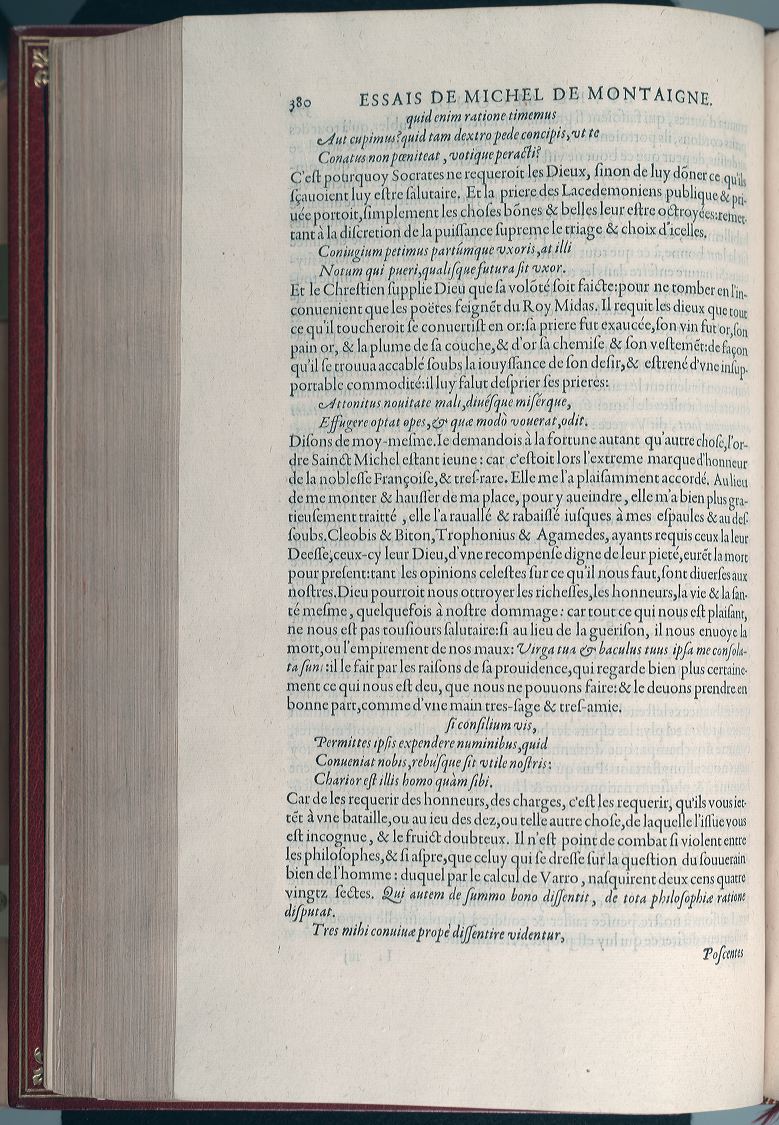 380 ESSAIS DE MICHEL DE MONTAIGNE.
quid enim ratione timemus
Aut cupimus? quid tam dextro pede concipis, vt te
Conatus non pœniteat, votique peracti?
C'eſt pourquoy Socrates ne requeroit les Dieux, ſinon de luy dõner ce qu'ils
ſçauoient luy eſtre ſalutaire. Et la priere des Lacedemoniens publique & pri-
uée portoit, ſimplement les choſes bõnes & belles leur eſtre octroyées: remet-
tant à la diſcretion de la puiſſance ſupreme le triage & choix d'icelles.
Coniugium petimus partúmque vxoris, at illi
Notum qui pueri, qualiſque futura ſit vxor.
Et le Chreſtien ſupplie Dieu que ſa volõté ſoit faicte: pour ne tomber en l'in-
conuenient que les poëtes feignẽt du Roy Midas. Il requit les dieux que tout
ce qu'il toucheroit ſe conuertiſt en or: ſa priere fut exaucée, ſon vin fut or, ſon
pain or, & la plume de ſa couche, & d'or ſa chemiſe & ſon veſtemẽt: de façon
qu'il ſe trouua accablé ſoubs la iouyſſance de ſon deſir, & eſtrené d'vne inſup-
portable commodité: il luy falut deſprier ſes prieres:
Attonitus nouitate mali, diuéſque miſérque,
Effugere optat opes, & quæ modo vouerat, odit.
Diſons de moy-meſme. Ie demandois à la fortune autant qu'autre choſe, l'or-
dre Sainct Michel eſtant ieune: car c'eſtoit lors l'extreme marque d'honneur
de la nobleſſe Françoiſe, & treſ-rare. Elle me l'a plaiſamment accordé. Au lieu
de me monter & hauſſer de ma place, pour y aueindre, elle m'a bien plus gra-
tieuſement traitté, elle l'a rauallé & rabaiſſé iuſques à mes eſpaules & au deſ-
ſoubs. Cleobis & Biton, Trophonius & Agamedes, ayants requis ceux la leur
Deeſſe, ceux-cy leur Dieu, d'vne recompenſe digne de leur pieté, eurẽt la mort
pour preſent: tant les opinions celeſtes ſur ce qu'il nous faut, ſont diuerſes aux
noſtres. Dieu pourroit nous ottroyer les richeſſes, les honneurs, la vie & la ſan-
té meſme, quelquefois à noſtre dommage: car tout ce qui nous eſt plaiſant,
ne nous eſt pas touſiours ſalutaire: ſi au lieu de la gueriſon, il nous enuoye la
mort, ou l'empirement de nos maux: Virga tua & baculus tuus ipſa me conſola-
ta ſunt: il le fait par les raiſons de ſa prouidence, qui regarde bien plus certaine-
ment ce qui nous eſt deu, que nous ne pouuons faire: & le deuons prendre en
bonne part, comme d'vne main tres-ſage & treſ-amie.
ſi conſilium vis,
Permittes ipſis expendere numinibus, quid
Conueniat nobis, rebúſque ſit vtile noſtris:
Charior eſt illis homo quàm ſibi.
Car de les requerir des honneurs, des charges, c'eſt les requerir, qu'ils vous iet-
tẽt à vne bataille, ou au ieu des dez, ou telle autre choſe, de laquelle l'iſſue vous
eſt incognue, & le fruict doubteux. Il n'eſt point de combat ſi violent entre
les philoſophes, & ſi aſpre, que celuy qui ſe dreſſe ſur la queſtion du ſouuerain
bien de l'homme: duquel par le calcul de Varro, naſquirent deux cens quatre
vingtz ſectes. Qui autem de ſummo bono diſſentit, de tota philoſophiæ ratione
diſputat.
Tres mihi conuiuæ prope diſſentire videntur,
Poſcentes